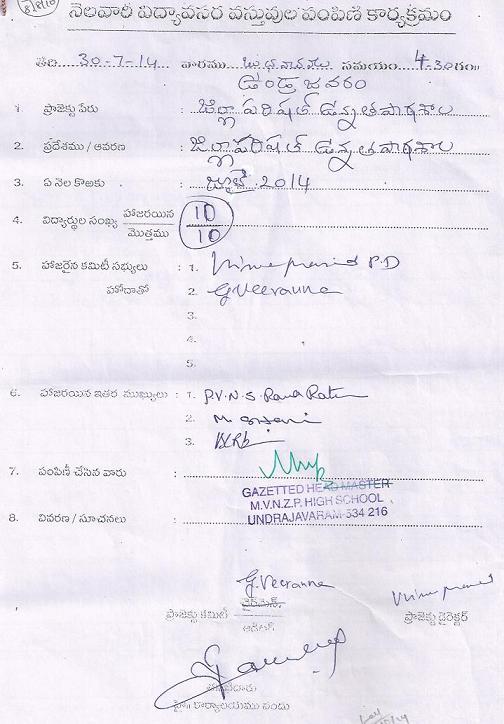 నెలవారీ విద్యావసర వస్తువుల పంపిణి కార్యక్రమం
తేది 30-7-14 వారము బుధవారము సమయం 4-30గం॥
ఉండ్రాజవరం
1. ప్రాజెక్టు పేరు : జిల్లా పరిషత్ ఉన్నత పాఠశాల
2. ప్రదేశము / ఆవరణ : జిల్లాపరిషత్ ఉన్నత పాఠశాల
3. ఏ నెల కొఱకు : జులై 2014
4. విద్యార్థుల సంఖ్య హాజరయిన 10
మొత్తము 10
5. హాజరైన కమిటీ సభ్యులు : 1. P.D
హోదాతో 2. G.Veeranna
3.
4.
5.
6. హాజరయిన ఇతర ముఖ్యులు : 1. P.V.N.S.
2. M.
3.
7. పంపిణీ చేసిన వారు :
GAZETTED HEAD MASTER
M.V.N.Z.P. HIGH SCHOOL
UNDRAJAVARAM-534 216
8. వివరణ / సూచనలు :
G.Veeranna
ప్రాజెక్టు కమిటీ చైర్మెన్
ప్రాజెక్టు డైరెక్టర్
కార్యాలయము నందు